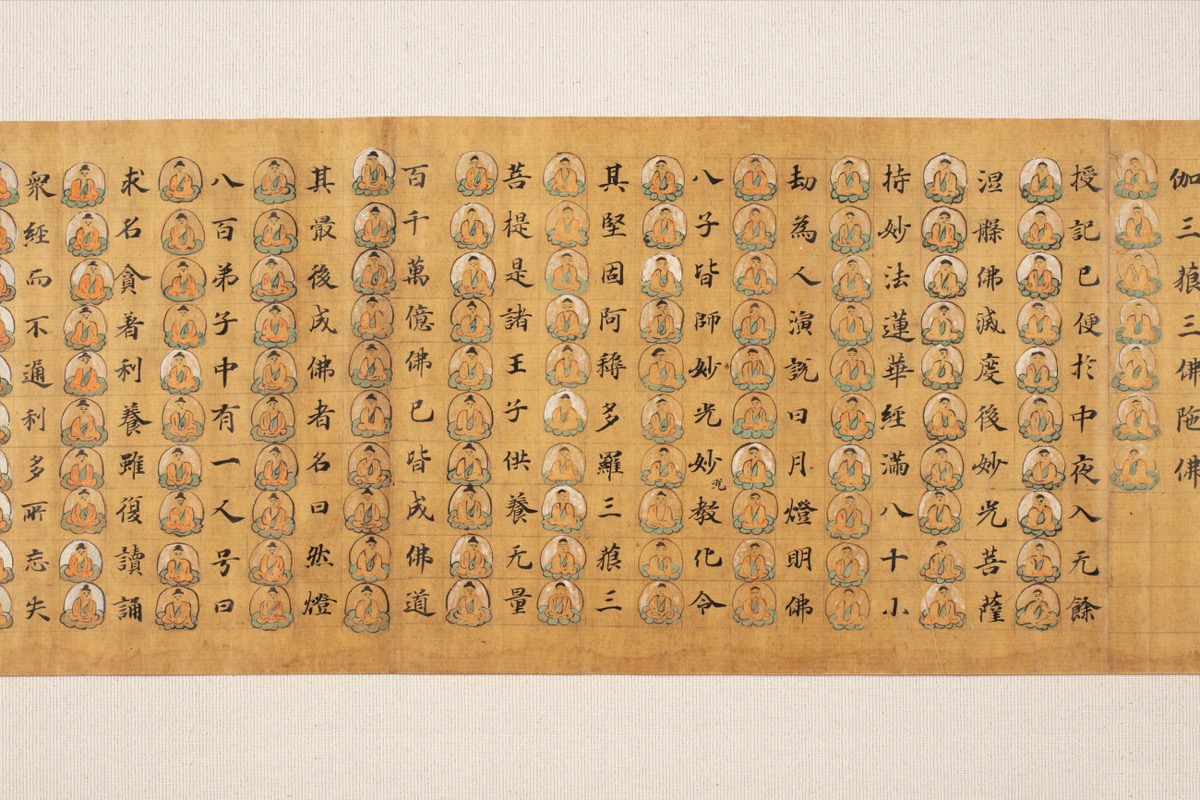 伽三藐三佛陁佛
授記已便於中夜入无餘
涅槃佛滅度後妙光菩薩
持妙法蓮華經滿八十小
劫為人演說日月燈明佛
八子皆師妙光妙光教化令
其堅固阿耨多羅三藐三
菩提是諸王子供養无量
百千萬億佛已皆成佛道
其最後成佛者名曰然燈
八百弟子中有一人号曰
求名貪著利養雖復讀誦
衆經而不通利多所忘失